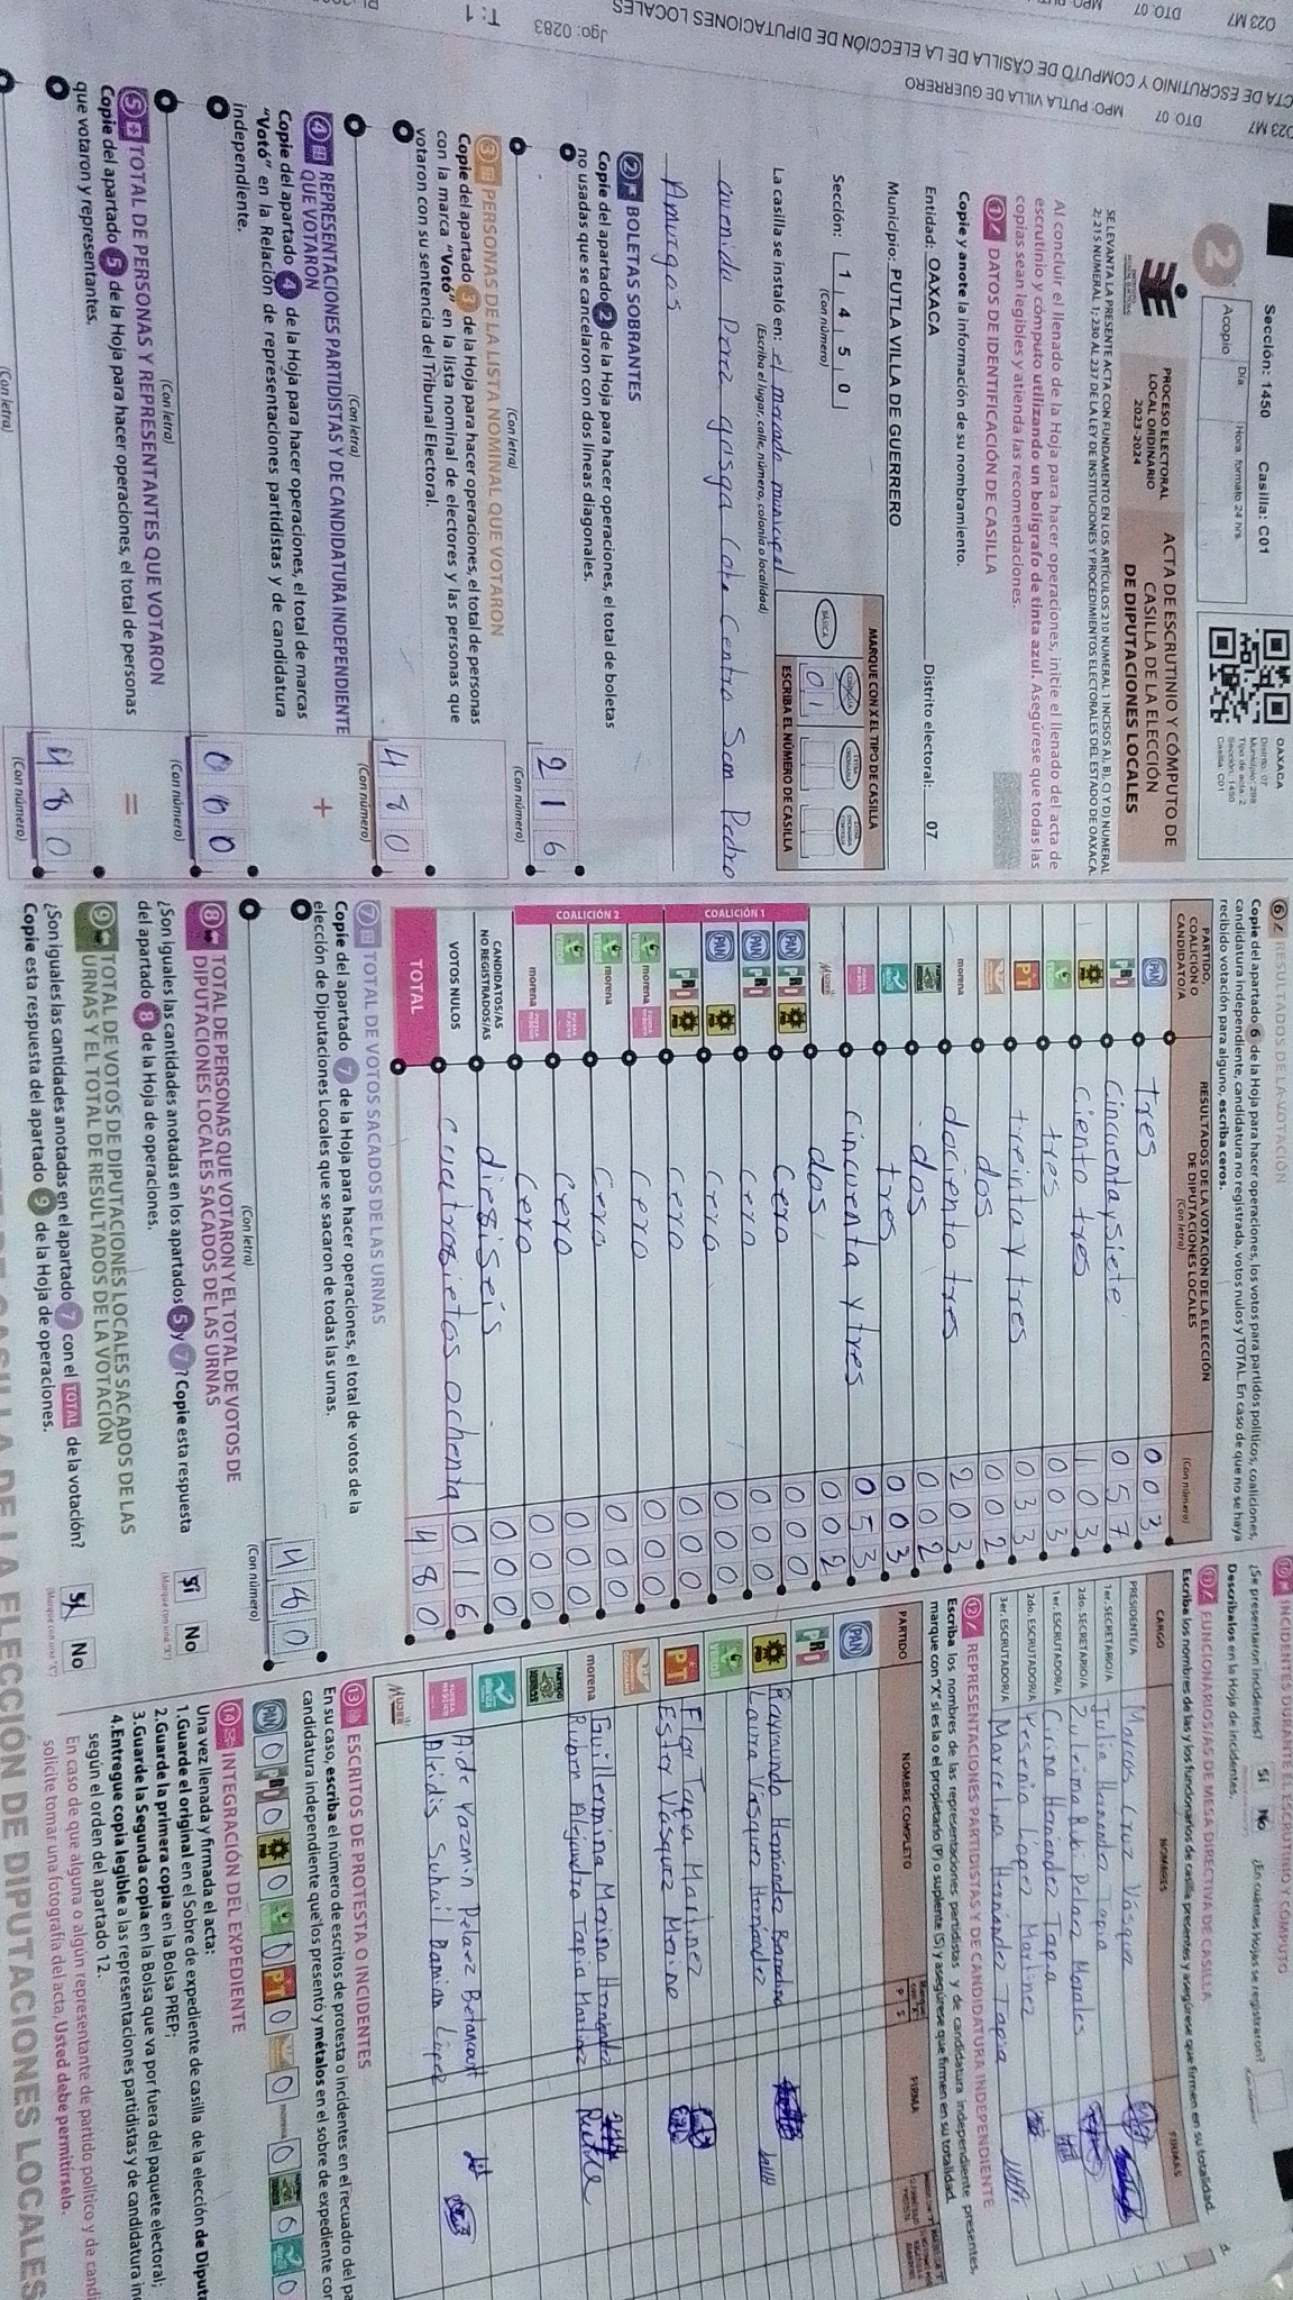 O23 M7
DTO. 07
CTA DE ESCRUTINIO Y CÓMPUTO DE CASILLA DE LA ELECCIÓN DE DIPUTACIONES LOCALES
O23 M7
DTO. 07
MPO. PUTLA VILLA DE GUERRERO
Jgo: 0283
T: 1
Sección: 1450 Casilla: C01
2
Día
Hora formato 24 hrs
Acopio
OAXACA
Distrito: 07
Municipio: 298
Tipo de acta: 2
Sección: 1450
Casilla: C01
PROCESO ELECTORAL
LOCAL ORDINARIO
2023-2024
ACTA DE ESCRUTINIO Y CÓMPUTO DE
CASILLA DE LA ELECCIÓN
DE DIPUTACIONES LOCALES
SE LEVANTA LA PRESENTE ACTA CON FUNDAMENTO EN LOS ARTÍCULOS 210 NUMERAL 1 INCISOS A), B), C) Y D) NUMERAL
2; 215 NUMERAL 1; 230 AL 237 DE LA LEY DE INSTITUCIONES Y PROCEDIMIENTOS ELECTORALES DEL ESTADO DE OAXACA.
Al concluir el llenado de la Hoja para hacer operaciones, inicie el llenado del acta de
escrutinio y cómputo utilizando un bolígrafo de tinta azul. Asegúrese que todas las
copias sean legibles y atienda las recomendaciones.
1 DATOS DE IDENTIFICACIÓN DE CASILLA
Copie y anote la información de su nombramiento.
Entidad: OAXACA Distrito electoral: 07
Municipio: PUTLA VILLA DE GUERRERO
Sección: 1 4 5 0
(Con número)
MARQUE CON X EL TIPO DE CASILLA
BÁSICA
CONTIGUA
EXTRAORDINARIA
0 1
ESCRIBA EL NÚMERO DE CASILLA
La casilla se instaló en: el mercado municipal
(Escriba el lugar, calle, número, colonia o localidad)
avenida Perez gasga Cole Centro San Pedro
Amuzgos
2 BOLETAS SOBRANTES
Copie del apartado 2 de la Hoja para hacer operaciones, el total de boletas
no usadas que se cancelaron con dos líneas diagonales.
2 1 6
(Con letra)
(Con número)
3 PERSONAS DE LA LISTA NOMINAL QUE VOTARON
Copie del apartado 3 de la Hoja para hacer operaciones, el total de personas
con la marca "Votó" en la lista nominal de electores y las personas que
votaron con su sentencia del Tribunal Electoral.
4 8 0
(Con letra)
(Con número)
4 REPRESENTACIONES PARTIDISTAS Y DE CANDIDATURA INDEPENDIENTE
QUE VOTARON
+
Copie del apartado 4 de la Hoja para hacer operaciones, el total de marcas
"Votó" en la Relación de representaciones partidistas y de candidatura
independiente.
0 0 0
(Con letra)
(Con número)
5 TOTAL DE PERSONAS Y REPRESENTANTES QUE VOTARON
=
Copie del apartado 5 de la Hoja para hacer operaciones, el total de personas
que votaron y representantes.
4 8 0
(Con letra)
(Con número)
6 RESULTADOS DE LA VOTACIÓN
Copie del apartado 6 de la Hoja para hacer operaciones, los votos para partidos políticos, coaliciones,
candidatura independiente, candidatura no registrada, votos nulos y TOTAL. En caso de que no se haya
recibido votación para alguno, escriba ceros.
PARTIDO,
COALICIÓN O
CANDIDATO/A
RESULTADOS DE LA VOTACIÓN DE LA ELECCIÓN
DE DIPUTACIONES LOCALES
(Con letra)
(Con número)
PAN tres 0 0 3
PRI Cincuenta y siete 0 5 7
PRD Ciento tres 1 0 3
VERDE tres 0 0 3
PT treinta y tres 0 3 3
dos 0 0 2
morena dociento tres 2 0 3
dos 0 0 2
tres 0 0 3
cincuenta y tres 0 5 3
MUJER dos 0 0 2
COALICIÓN 1
PAN PRI PRD Cero 0 0 0
PAN PRI Cero 0 0 0
PAN PRD Cero 0 0 0
PRI PRD Cero 0 0 0
COALICIÓN 2
VERDE morena Cero 0 0 0
VERDE morena Cero 0 0 0
VERDE Cero 0 0 0
morena Cero 0 0 0
CANDIDATOS/AS
NO REGISTRADOS/AS 0 0 0
VOTOS NULOS diesiseis 0 1 6
TOTAL cuatrosietos ochenta 4 8 0
7 TOTAL DE VOTOS SACADOS DE LAS URNAS
Copie del apartado 7 de la Hoja para hacer operaciones, el total de votos de la
elección de Diputaciones Locales que se sacaron de todas las urnas.
4 8 0
(Con letra)
(Con número)
8 TOTAL DE PERSONAS QUE VOTARON Y EL TOTAL DE VOTOS DE
DIPUTACIONES LOCALES SACADOS DE LAS URNAS
¿Son iguales las cantidades anotadas en los apartados 5 y 7? Copie esta respuesta
del apartado 8 de la Hoja de operaciones.
Sí No
(Marque con una "X")
9 TOTAL DE VOTOS DE DIPUTACIONES LOCALES SACADOS DE LAS
URNAS Y EL TOTAL DE RESULTADOS DE LA VOTACIÓN
¿Son iguales las cantidades anotadas en el apartado 7 con el TOTAL de la votación?
Copie esta respuesta del apartado 9 de la Hoja de operaciones.
Sí No
(Marque con una "X")
10 INCIDENTES DURANTE EL ESCRUTINIO Y CÓMPUTO
¿Se presentaron incidentes? Sí No ¿En cuántas Hojas se registraron?
Descríbalos en la Hoja de incidentes.
11 FUNCIONARIOS/AS DE MESA DIRECTIVA DE CASILLA
Escriba los nombres de las y los funcionarios de casilla presentes y asegúrese que firmen en su totalidad.
CARGO NOMBRES FIRMAS
PRESIDENTE/A Marcos Cruz Vásquez
1er. SECRETARIO/A Julia Hernandez Tapia
2do. SECRETARIO/A Zuleima Rubi Pelaez Morales
1er. ESCRUTADOR/A Cirina Hernandez Tapia
2do. ESCRUTADOR/A Yesenia López Martinez
3er. ESCRUTADOR/A Marcelina Hernández Tapia
12 REPRESENTACIONES PARTIDISTAS Y DE CANDIDATURA INDEPENDIENTE
Escriba los nombres de las representaciones partidistas y de candidatura independiente presentes,
marque con "X" si es la o el propietario (P) o suplente (S) y asegúrese que firmen en su totalidad.
PARTIDO NOMBRE COMPLETO P S FIRMA
PAN
PRI Raymundo Hernández
PRD Laura Vásquez Hernández
VERDE
PT Flor Tapia Martinez
Ester Vásquez Merino
morena Guillermina Merino Hernández
Ruben Alejandro Tapia Martinez
Aide Yazmin Pelaez Betancourt
Aleidis Suhail Damian López
MUJER
13 ESCRITOS DE PROTESTA O INCIDENTES
En su caso, escriba el número de escritos de protesta o incidentes en el recuadro del pa
candidatura independiente que los presentó y métalos en el sobre de expediente cor
PAN 0 PRI 0 0 0 PT 0 0 0 0 0
14 INTEGRACIÓN DEL EXPEDIENTE
Una vez llenada y firmada el acta:
1.Guarde el original en el Sobre de expediente de casilla de la elección de Diput
2.Guarde la primera copia en la Bolsa PREP;
3.Guarde la Segunda copia en la Bolsa que va por fuera del paquete electoral;
4.Entregue copia legible a las representaciones partidistas y de candidatura in
según el orden del apartado 12.
En caso de que alguna o algún representante de partido político y de candi
solicite tomar una fotografía del acta, Usted debe permitírselo.
DE LA ELECCIÓN DE DIPUTACIONES LOCALES